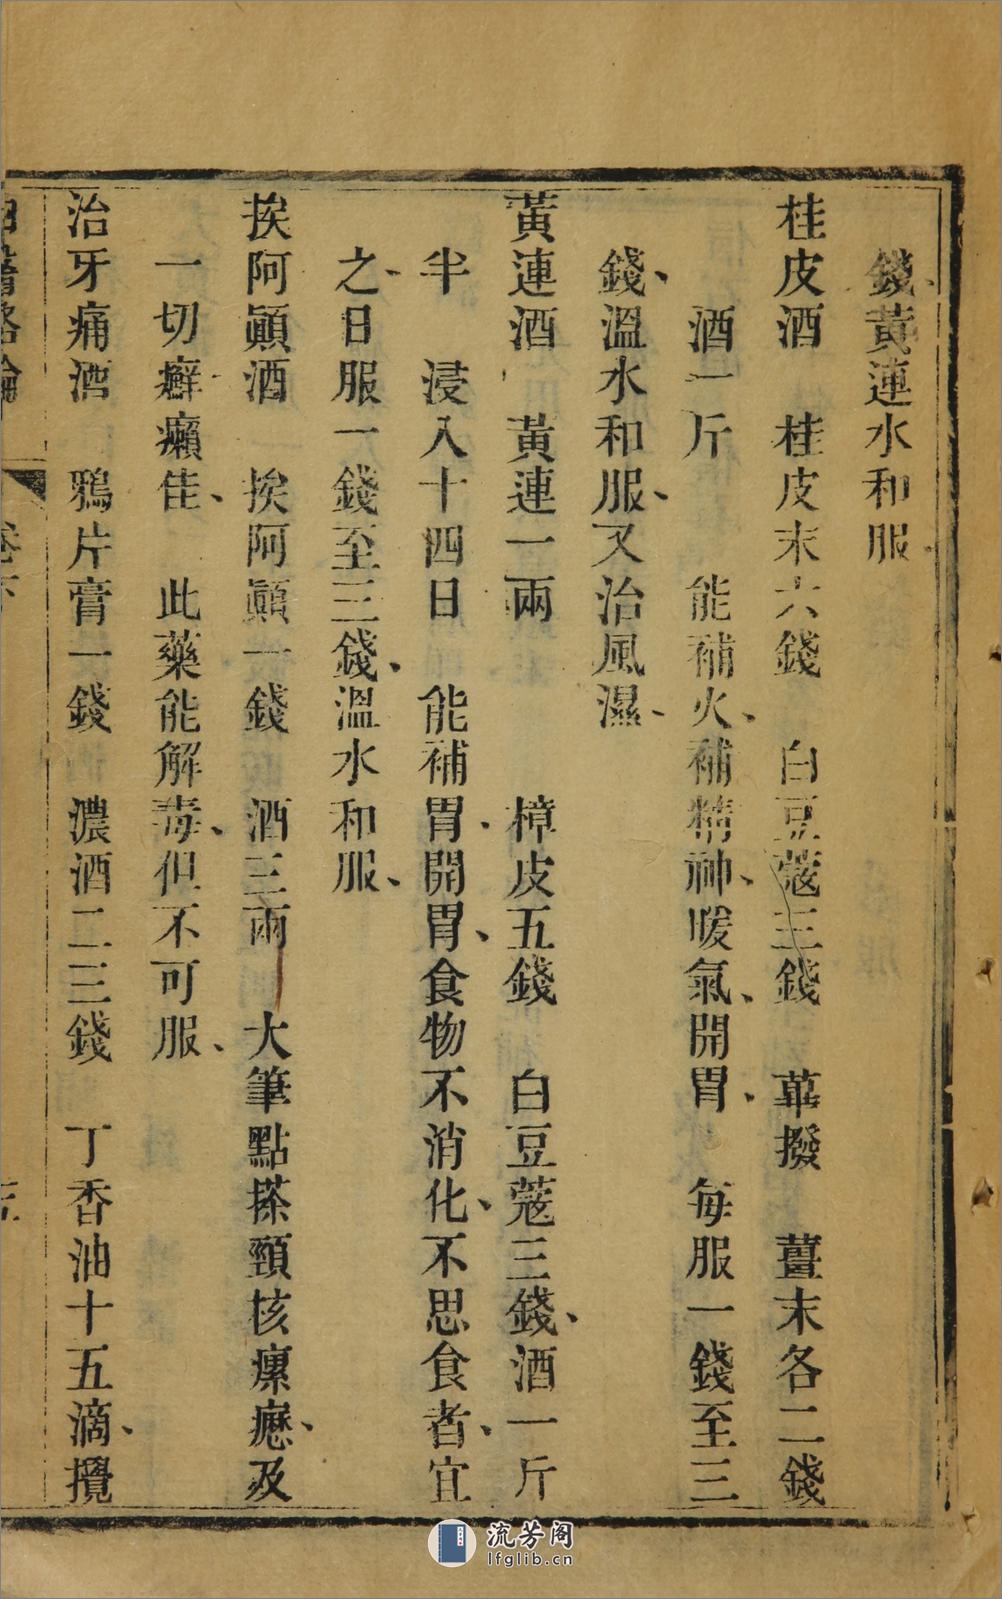 錢、黃連水和服、
桂皮酒　桂皮末六錢　白豆蔻三錢　蓽撥　薑末各二錢
酒一斤　能補火、補精神、暖氣、開胃、　每服一錢至三
錢、溫水和服、又治風濕、
黃連酒　黃連一兩　樟皮五錢　白豆蔻三錢、酒一斤
半　浸入十四日　能補胃、開胃、食物不消化、不思食者、宜
之、日服一錢至三錢、溫水和服、
挨阿顚酒　挨阿顚一錢　酒三兩　大筆點搽頸核瘰癧、及
一切癬癩佳、　此藥能解毒、但不可服、
治牙痛酒　鴉片膏一錢　濃酒二三錢　丁香油十五滴、攪
西醫略論
卷下
流芳阁
lfglib.cn